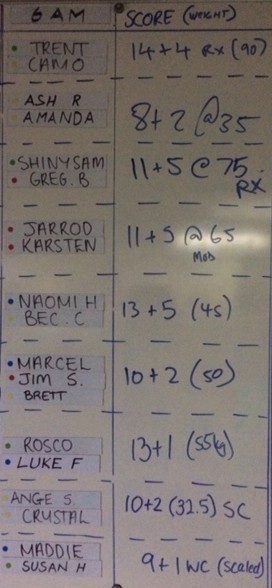 6 AM SCORE (WEIGHT)
TRENT
CAMO
14+4 RX (90)
ASH R
AMANDA
8+2 @35
SHINYSAM
GREG.B
11+5 @ 75
RX
JARROD
KARSTEN
11+5 @ 65
MOD
NAOMI H
BEC. C
13+5 (45)
MARCEL
JIM S.
BRETT
10+2 (50)
ROSCO
LUKE F
13+1 (55kg)
ANGE S.
CRYSTAL
10+2 (32.5) SC
MADDIE
SUSAN H
9+1 WC (scaled)